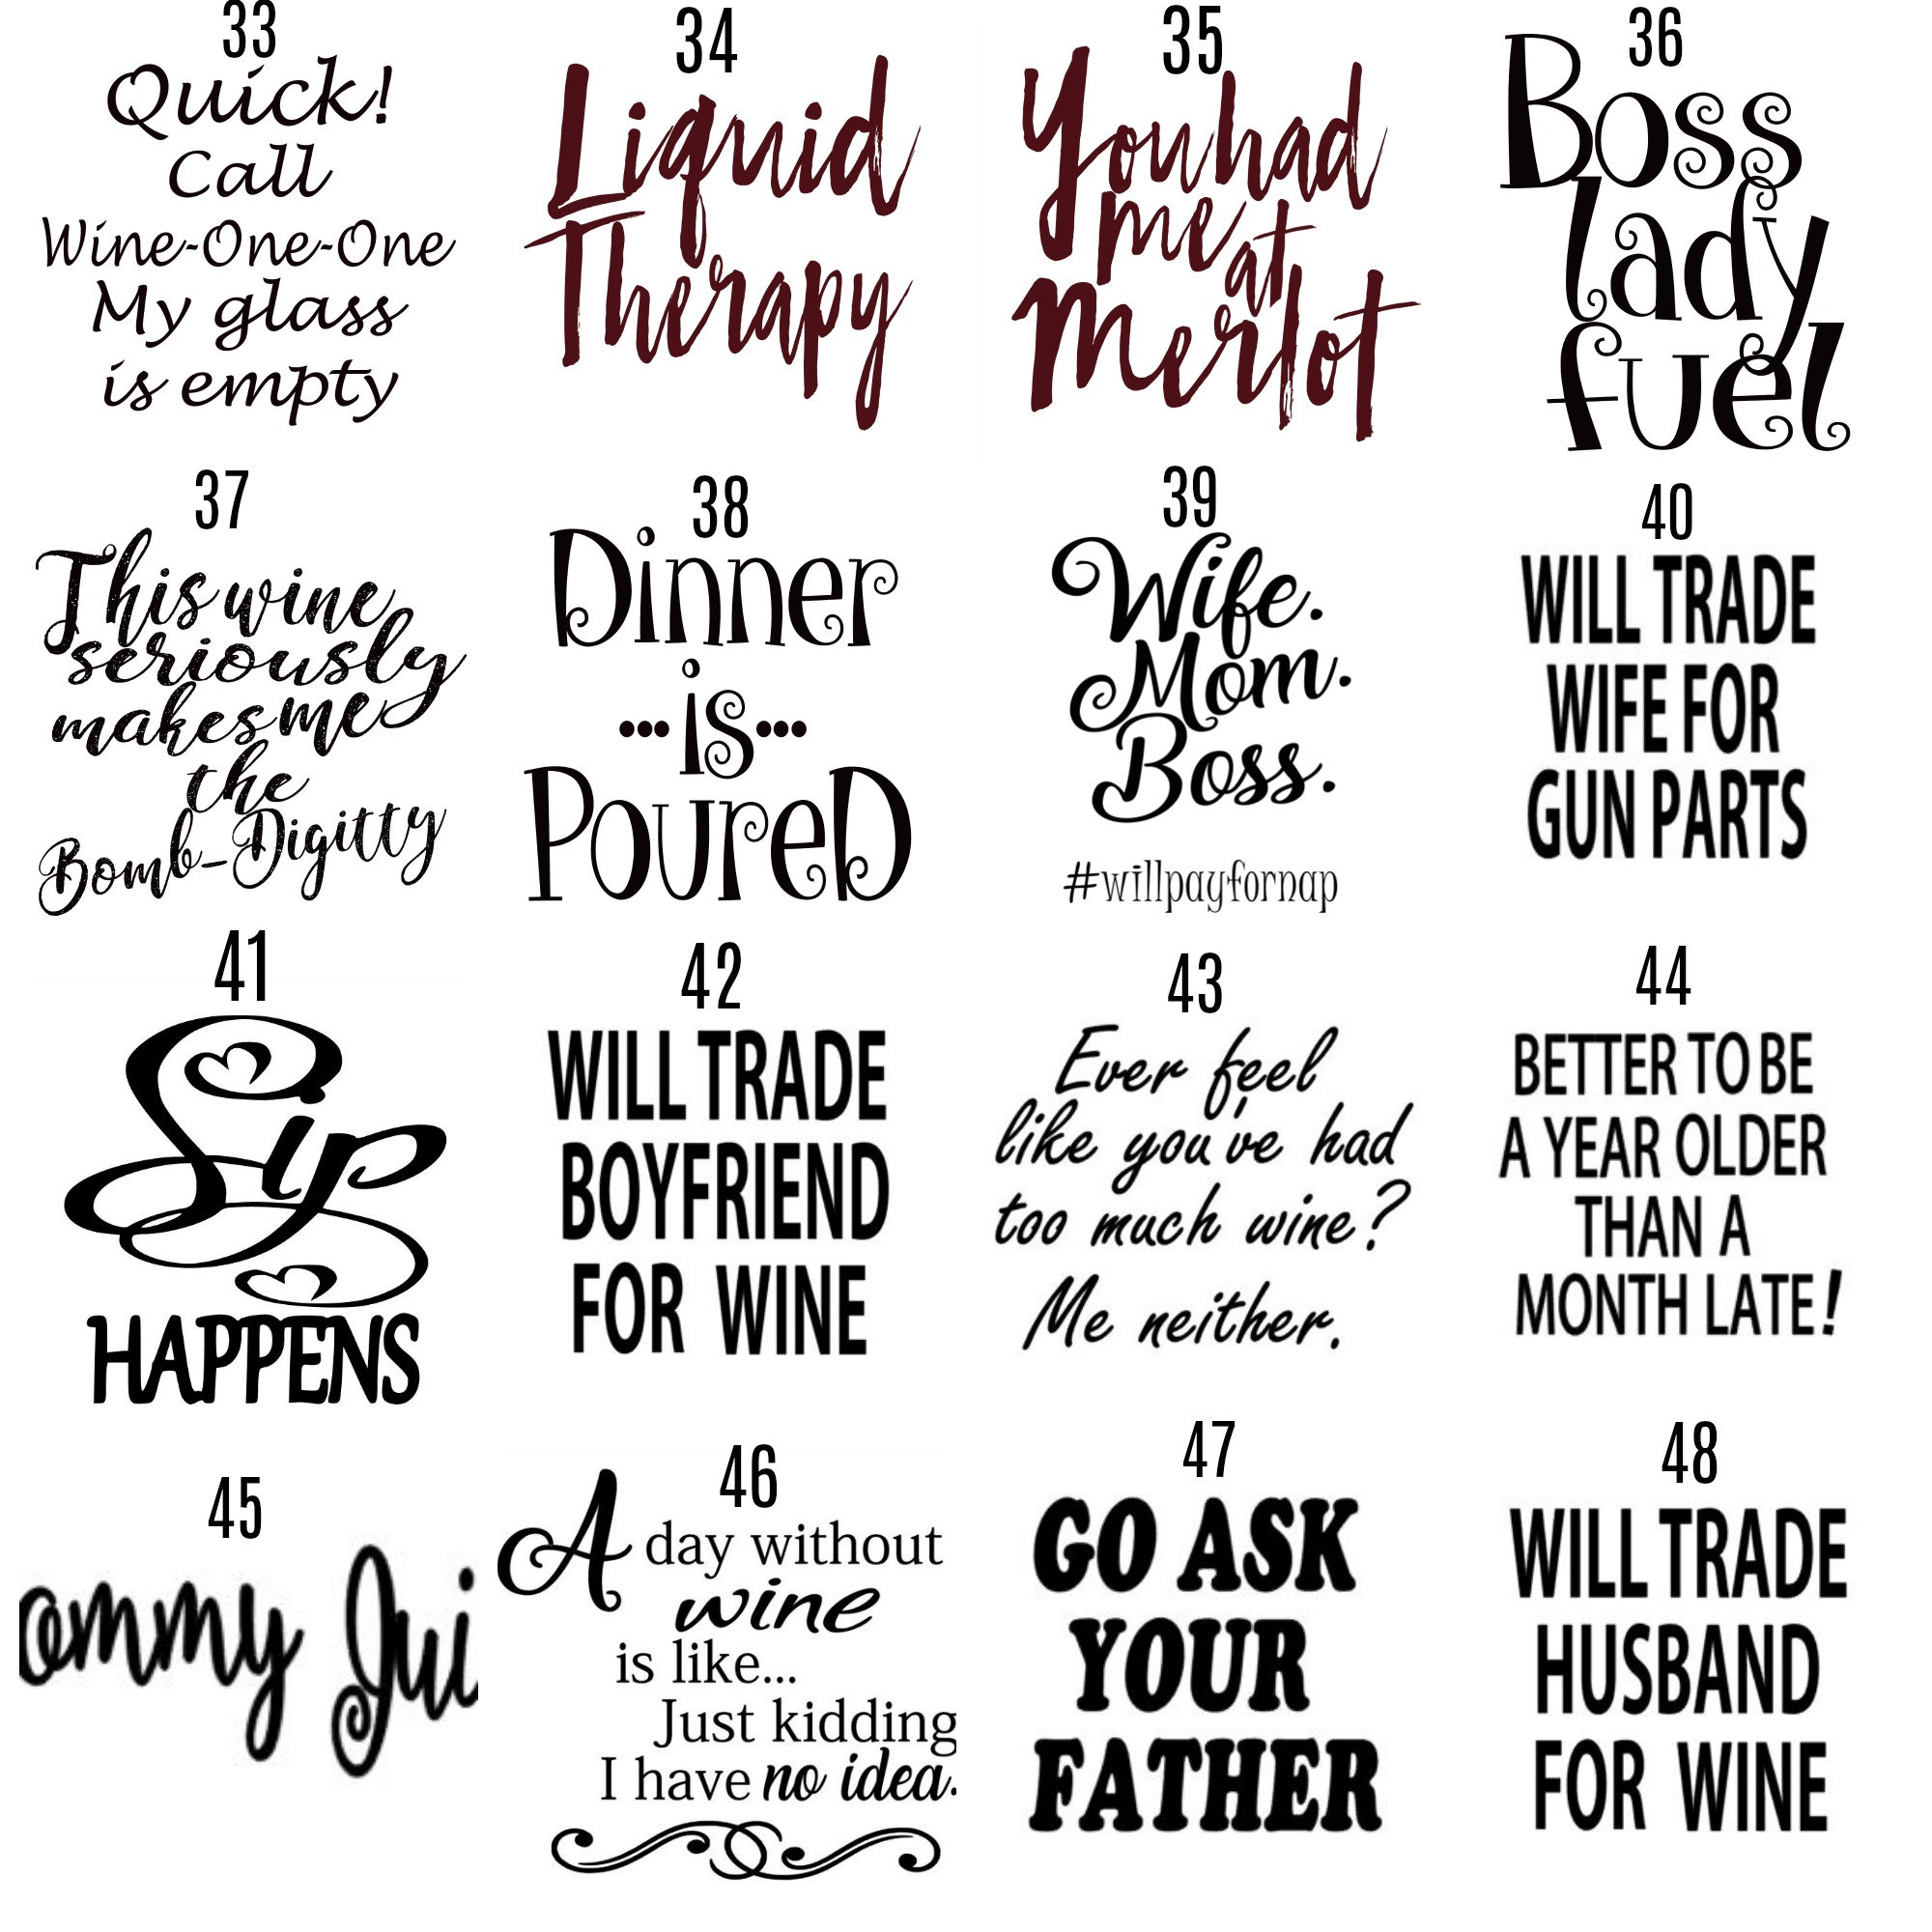 33
Quick!
Call
Wine-One-One
My glass
is empty
34
Liquid
Therapy
35
You had
me at
Merlot
36
Boss
lady
fuel
37
This wine
seriously
makes me
the
Bomb-Digitty
38
Dinner
...is...
Poured
39
Wife.
Mom.
Boss.
#willpayfornap
40
WILL TRADE
WIFE FOR
GUN PARTS
41
Sip
HAPPENS
42
WILL TRADE
BOYFRIEND
FOR WINE
43
Ever feel
like you've had
too much wine?
Me neither.
44
BETTER TO BE
A YEAR OLDER
THAN A
MONTH LATE!
45
ommy Jui
46
A day without
wine
is like...
Just kidding
I have no idea.
47
GO ASK
YOUR
FATHER
48
WILL TRADE
HUSBAND
FOR WINE